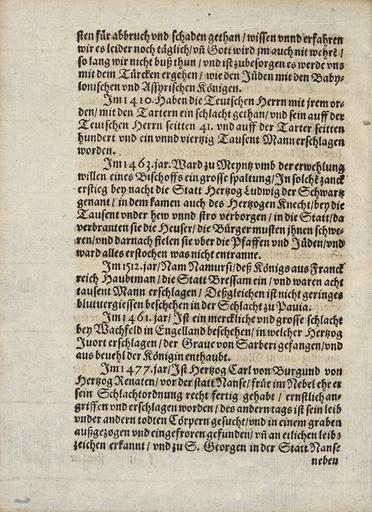 sten für abbruch vnd schaden gethan / wissen vnnd erfahren
wir es leider noch täglich / vñ Gott wird jm auch nit wehrē /
so lang wir nicht buß thun / vnd ist zubesorgen es werde vns
mit dem Türcken ergehen / wie den Jüden mit den Baby-
lonischen vnd Assyrischen Königen.
Im 1410. Haben die Teutschen Herrn mit jrem or-
den / mit den Tartern ein schlacht gethan / vnd sein auff der
Teutschen Herrn seitten 41. vnd auff der Tarter seitten
hundert vnd ein vnnd viertzig Tausent Mann erschlagen
worden.
Im 1463. jar. Ward zu Meyntz vmb der erwehlung
willen eines Bischoffs ein grosse spaltung / In solchē zanck
erstieg bey nacht die Statt Hertzog Ludwig der Schwartz
genant / in dem kamen auch des Hertzogen Knecht / bey die
Tausent vnder hew vnnd stro verborgen / in die Statt / da
verbranten sie die Heuser / die Bürger musten jhnen schwe-
ren / vnd darnach fielen sie vber die Pfaffen vnd Jüden / vnd
ward alles erstochen was nicht entrannt.
Im 1512. jar / Nam Namursi / deß Königs aus Franck
reich Haubtman / die Statt Bressam ein / vnd waren acht
tausent Mann erschlagen / Deßgleichen ist nicht geringes
blutuergiessen beschehen in der Schlacht zu Pauia.
Im 1461. jar / Ist ein merckliche vnd grosse schlacht
bey Wachfeld in Engelland beschehen / in welcher Hertzog
Juort erschlagen / der Graue von Sarberi gefangen / vnd
aus beuehl der Königin enthaubt.
Im 1477. jar / Ist Hertzog Carl von Burgund von
Hertzog Renaten / vor der statt Nanse / frűe im Nebel ehe er
sein Schlachtordnung recht fertig gehabt / ernstlich an-
griffen vnd erschlagen worden / des andern tags ist sein leib
vnder andern todten Cörpern gesucht / vnd in einem graben
außgezogen vnd eingefroren gefunden / vñ an etlichen leib-
zeichen erkannt / vnd zu S. Georgen in der Statt Nanse
neben